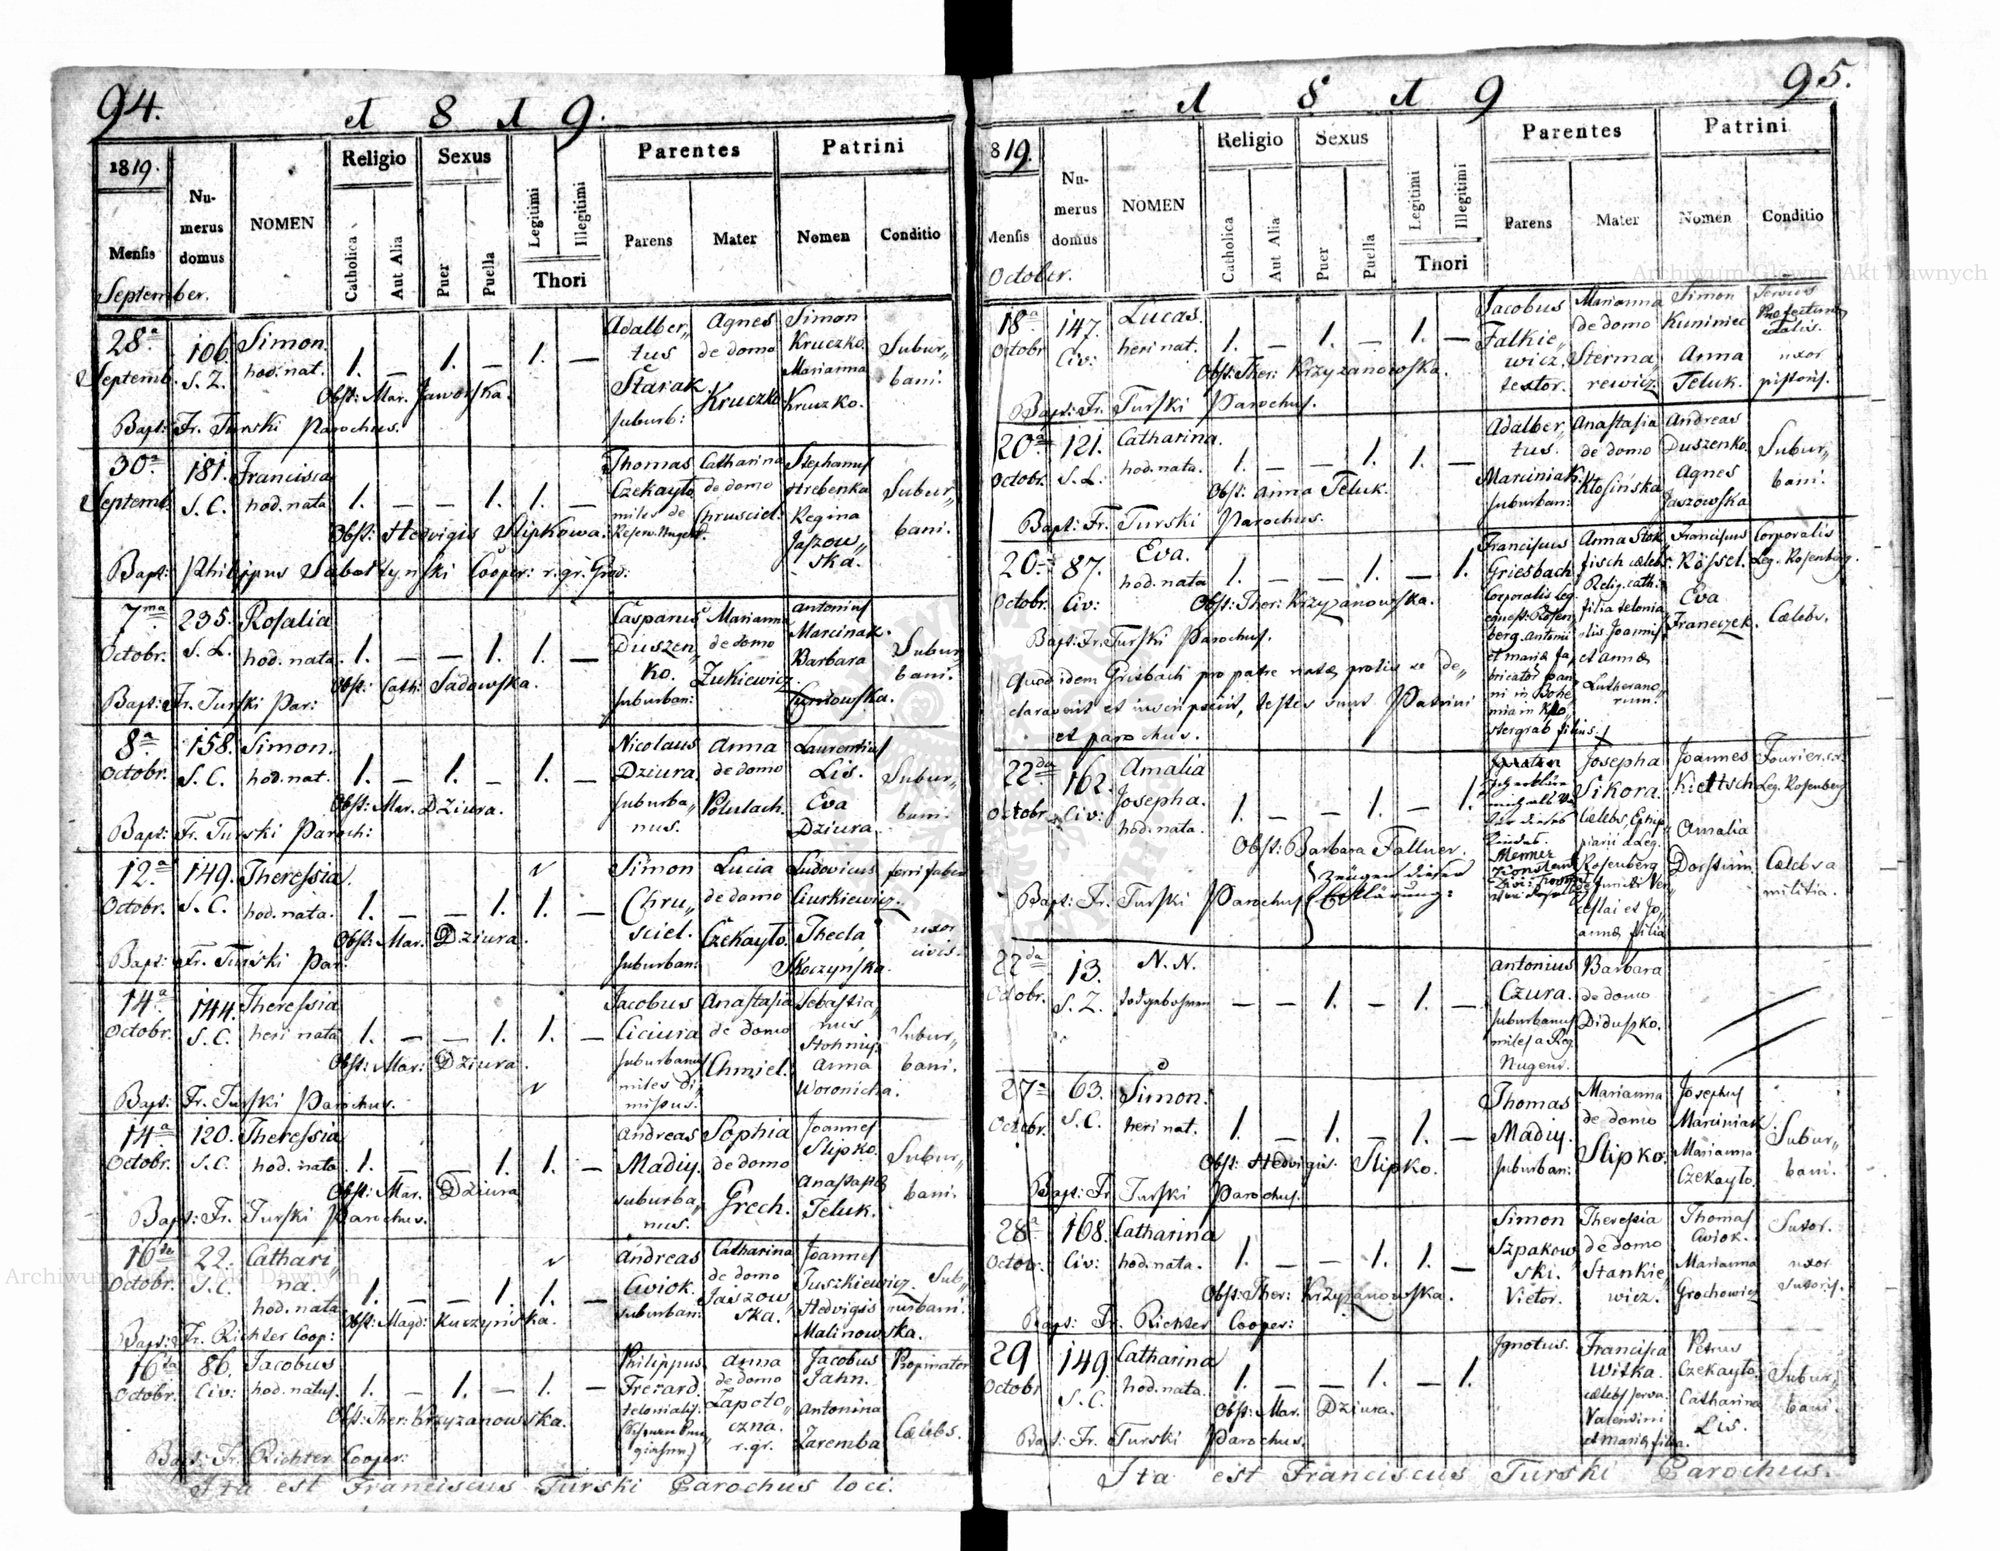 94.
1 8 1 9.
1819.
Numerus domus
NOMEN
Religio
Sexus
Parentes
Patrini
Catholica
Aut Alia
Puer
Puella
Legitimi
Illegitimi
Thori
Parens
Mater
Nomen
Conditio
Mensis
September.
28a Septemb. 106. S. Z. Simon. hod. nat. 1. — 1. — 1. —
Adalber„ tus Starak suburb:
Agnes de domo Kruczko
Simon Kruczko. Marianna Kruczko.
Subur„ bani.
Obst: Mar. Jaworska.
Bapt: Fr. Turski Parochus.
30a Septemb. 181. S. C. Francisca hod. nata 1. — — 1. 1. —
Thomas Czekayło miles de
Catharina de domo Chrusciel.
Stephanus Hrebenka Regina Jaszow„ ska.
Subur„ bani.
Obst: Hedvigis Slipkowa.
Bapt: Philippus Cooper: r. gr.
7ma Octobr. 235. S. L. Rosalia hod. nata. 1. — — 1. 1. —
Casparus Duszen„ ko. suburban:
Marianna de domo Zukiewicz.
Antonius Marciniak. Barbara
Subur„ bani.
Obst: Cath: Sadowska.
Bapt: Fr. Turski Par:
8a Octobr. 158. S. C. Simon. hod. nat. 1. — 1. — 1. —
Nicolaus Dziura suburba„ nus.
Anna de domo
Laurentius Lis. Eva Dziura.
Subur„ bani.
Obst: Mar. Dziura.
Bapt: Fr. Turski Paroch:
12a Octobr. 149. S. C. Theressia. hod. nata. 1. — — 1. 1. —
Simon Chru„ sciel. suburban:
Lucia de domo Czekayło.
Ludovicus Ciurkiewicz. Thecla Skoczynska.
ferri faber uxor civis.
Obst: Mar: Dziura.
Bapt: Fr. Turski Par:
14a Octobr. 144. S. C. Theressia heri nata 1. — — 1. 1. —
Jacobus Ciciura suburbanus miles di„ missus.
Anastasia de domo Chmiel.
Sebastia„ nus. Anna Woronicha.
Subur„ bani.
Obst: Mar: Dziura.
Bapt: Fr. Turski Parochus.
14a Octobr. 120. S. C. Theressia hod. nata 1. — — 1. 1. —
Andreas Madiy. suburba„ nus.
Sophia de domo Grech.
Joannes Slipko. Anastasia Teluk.
Subur„ bani.
Obst: Mar. Dziura
Bapt: Fr. Turski Parochus.
16ta Octobr. 22. S. C. Cathari„ na. hod. nata 1. — — 1. 1. —
Andreas Cwiok. suburban:
Catharina de domo Jaszow„ ska.
Joannes Tuszkiewicz. Hedvigis Malinowska.
Sub„ urbani.
Obst: Magd: Kuczynska.
Bapt: Fr. Richter Coop:
16ta Octobr. 86. Civ: Jacobus hod. natus. 1. — 1. — 1. —
Philippus Frerard.
Anna de domo Łapoto„ czna. r. gr.
Jacobus Jahn. Antonina Zaremba
Propinator Cælebs.
Obst: Ther: Krzyzanowska.
Bapt: Fr. Richter Cooper:
Ita est Franciscus Turski Parochus loci.
95.
1 8 1 9
819.
Numerus domus
NOMEN
Religio
Sexus
Parentes
Patrini
Catholica
Aut Alia
Puer
Puella
Legitimi
Illegitimi
Thori
Parens
Mater
Nomen
Conditio
Mensis
October.
18a Octobr 147. Civ: Lucas. heri nat. 1. — 1. — 1. —
Jacobus Falkie„ wicz. textor.
Marianna de domo Sterma„ rewicz
Simon Kuniniec Anna Teluk.
uxor pistoris.
Obst: Ther: Krzyzanowska.
Bapt: Fr. Turski Parochus.
20a Octobr. 121. S. L. Catharina. hod. nata. 1. — — 1. 1. —
Adalber„ tus. Marciniak. suburban:
Anastasia de domo Kłosinska
Andreas Duszenko. Agnes Jaszowska
Subur„ bani.
Obst: Anna Teluk.
Bapt: Fr. Turski Parochus.
20 Octobr. 87. Civ: Eva. hod. nata 1. — — 1. — 1.
Franciscus Griesbach. Corporalis Leg.
Anna Stok„ fisch cælebs Relig. cath. filia
et Annæ Lutherano„ rum.
Franciscus Rössel. Eva Franeczek.
Corporalis Leg. Rosenberg. Cælebs.
Obst: Ther: Krzyzanowska.
Bapt: Fr. Turski Parochus.
Quod idem Grisbach pro patre natæ prolis se de„
claraverit et inscripserit, testes sunt Patrini
et parochus.
22da Octobr. 162. Civ: Amalia Josepha. hod. nata. 1. — — 1. — 1.
Josepha Sikora. Cælebs
Joannes Amalia
Fourier Leg. Rosenberg Cælebs a militia.
Obst: Barbara Fallner.
Zeugen dieser Erklärung:
Bapt: Fr. Turski Parochus
22da Octobr. 13. S. Z. N. N. todgebohren — — 1. — 1. —
Antonius Czura. suburbanus miles a Reg. Nugent.
Barbara de domo Diduszko.
27a Octobr. 63. S. C. Simon. heri nat. 1. — 1. — 1. —
Thomas Madiy. suburban:
Marianna de domo Slipko.
Josephus Marciniak Marianna Czekayło.
Subur„ bani.
Obst: Hedvigis Slipko.
Bapt: Fr. Turski Parochus.
28a Octob. 168. Civ: Catharina hod. nata. 1. — — 1. 1. —
Simon Szpakow„ ski. Vietor.
Theresia de domo Stankie„ wicz.
Thomas Cwiok. Marianna Grochowicz
Sutor. uxor Sutoris.
Obst: Ther: Krzyzanowska.
Bapt: Fr. Richter Cooper:
29 Octobr 149. S. C. Catharina hod. nata. 1. — — 1. — 1.
Ignotus.
Francisca Witka. cælebs serva. Valentini et Mariæ filia.
Petrus Czekayło. Catharina Lis.
Subur„ bani.
Obst: Mar. Dziura.
Bapt: Fr. Turski Parochus.
Ita est Franciscus Turski Parochus.
Archiwum Główne Akt Dawnych
Archiwum Główne Akt Dawnych